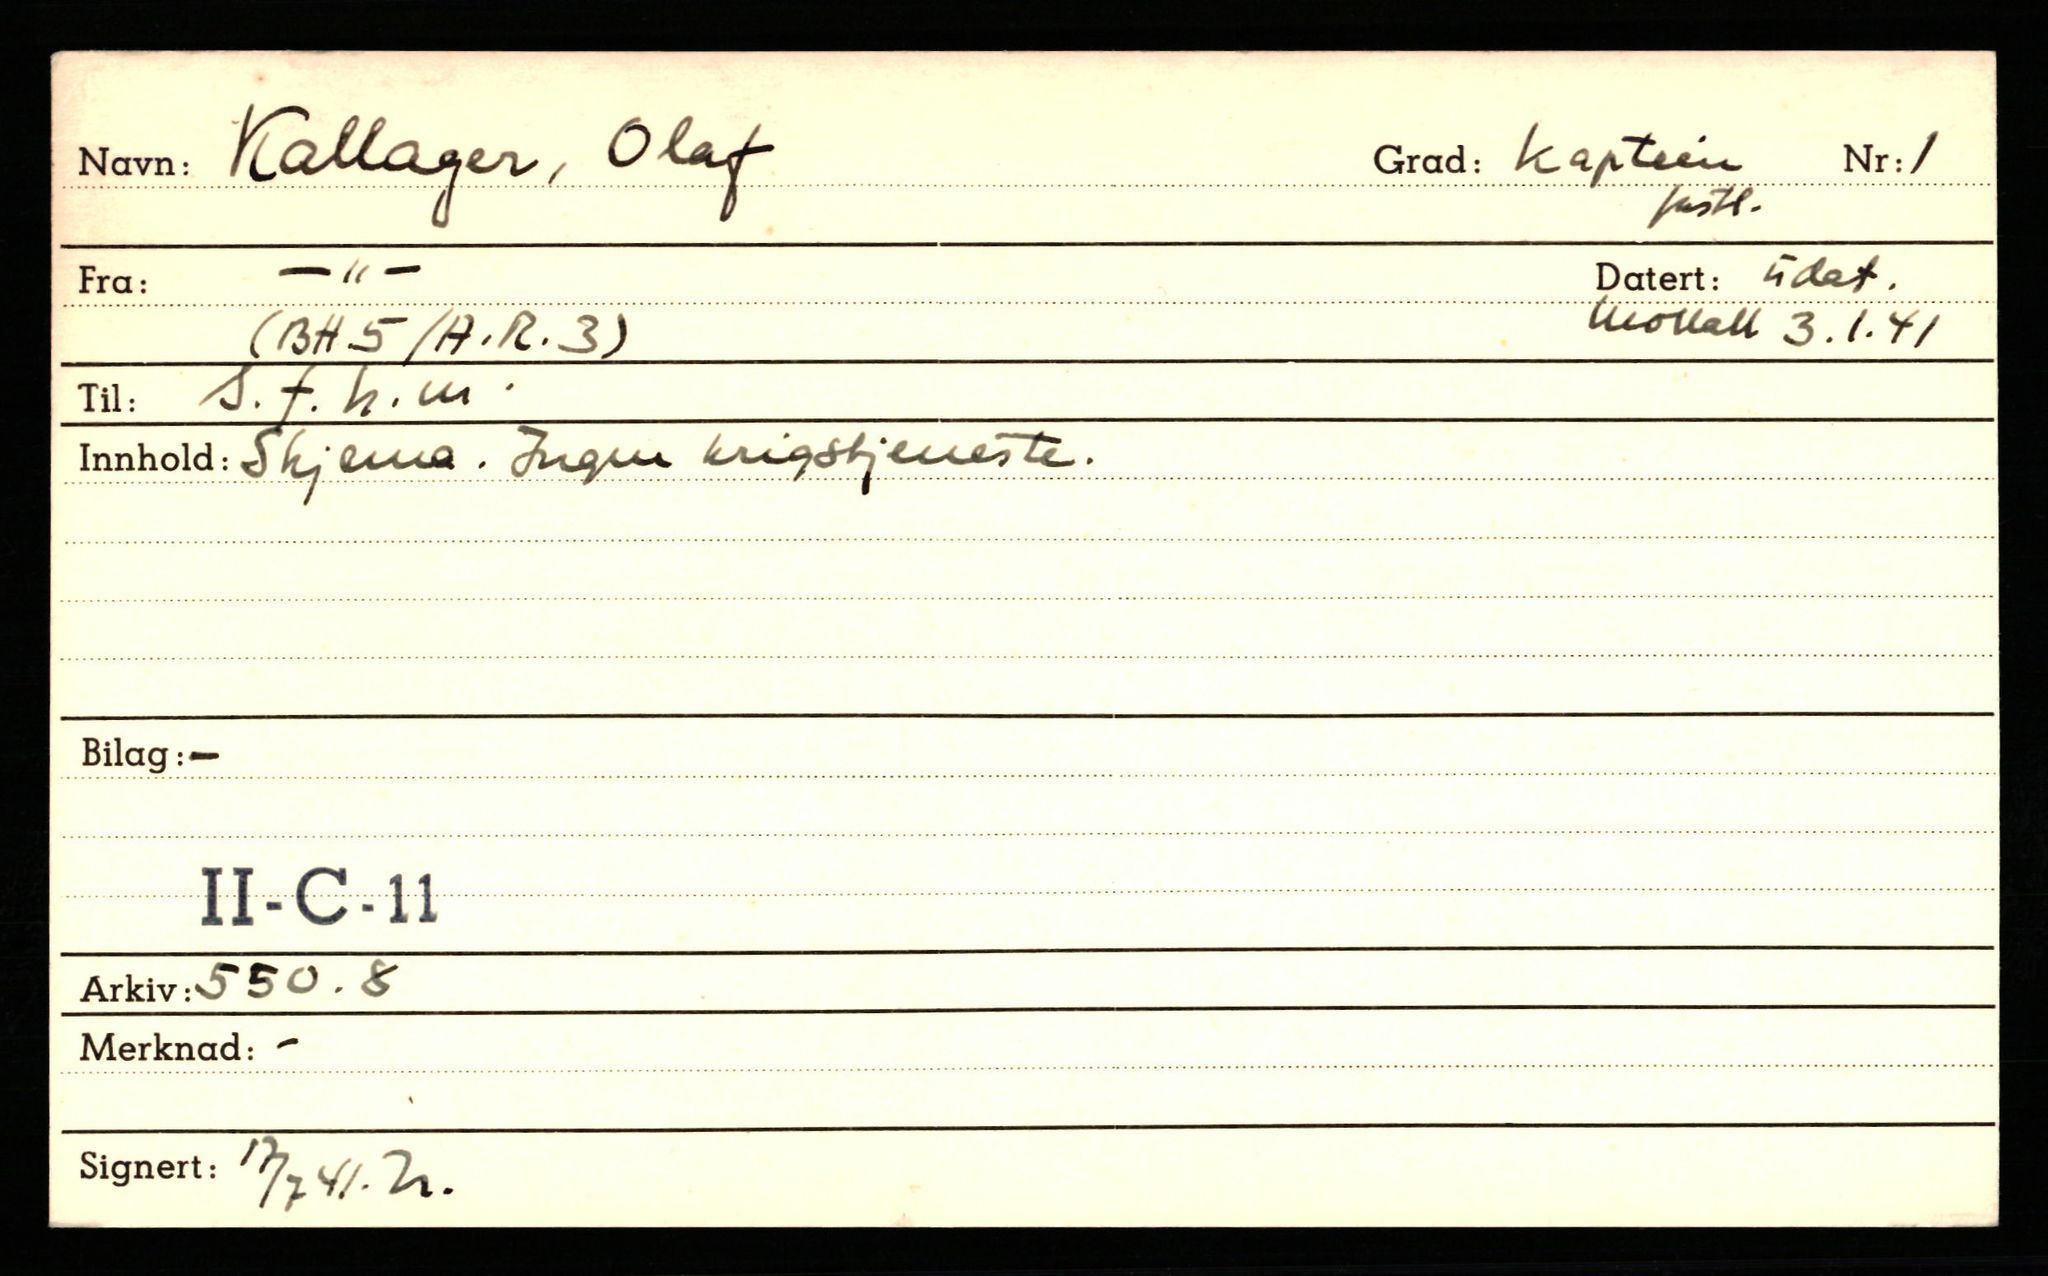 Navn: Kallager, Olaf Grad: Kaptein Nr: 1
Fra: —"— Datert: udat.
(BH5/A.R.3) Mottatt 3.1.41
Til: S.f.h.m.
Innhold: Skjema. Ingen krigstjeneste.
Bilag: -
II-C-11
Arkiv: 550.8
Merknad: -
Signert: 17/7 41. N.